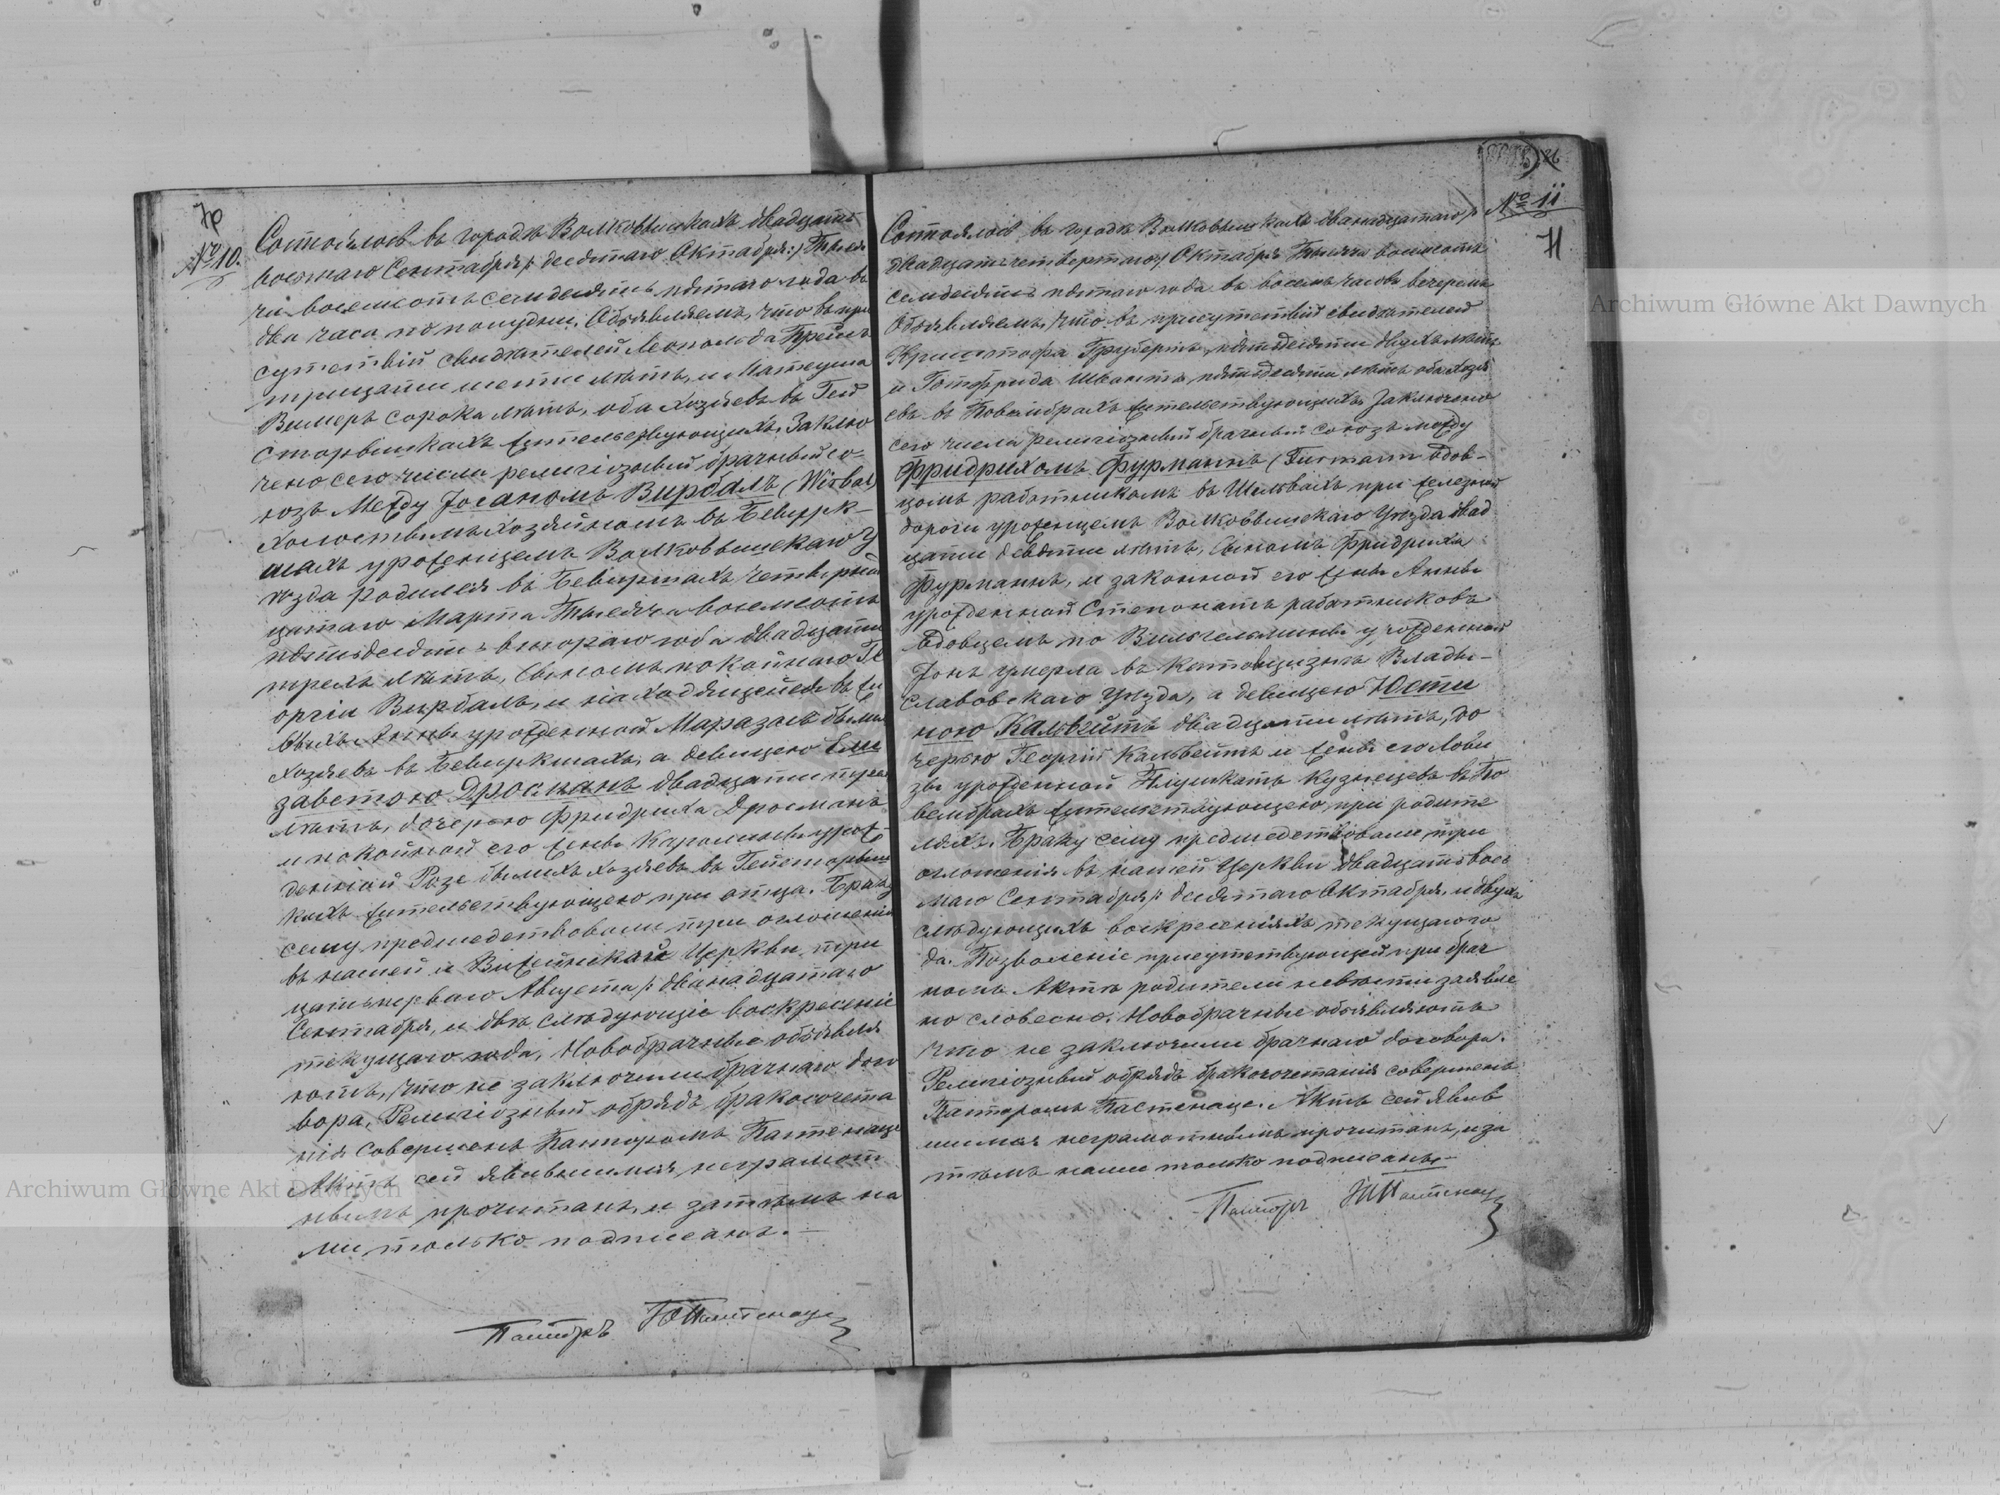 70
№ 10.
Состоялось въ городѣ Волковышкахъ двадцать
восьмаго Сентября /: десятаго Октября :/ Тыся
ча восемьсотъ семьдесятъ пятаго года въ
два часа по полудни. Объявляемъ, что въ при
сутствіи свидѣтелей Леопольда Прейсъ
тридцати шести лѣтъ, и Матеуша
Вимеръ сорока лѣтъ, оба хозяевъ въ Гей
сторышкахъ жительствующихъ. Заклю
чено сего числа религіозный брачный со-
юзъ Между Іоганомъ Вирбалъ (Wirbal)
холостымъ хозяйномъ въ Бевирк-
шахъ уроженцемъ Волковышскаго У
ѣзда родился въ Бевиршахъ четвернад
цатаго Марта Тысяча восемьсотъ
пятьдесятъ втораго года двадцати
трехъ лѣтъ, сыномъ покойнаго Ге
оргія Вирбалъ, и находящейся въ жи
выхъ Анны урожденной бывш
хозяевъ въ Бевиркшахъ, а девицею Ели
заветою Дросманъ двадцати трехъ
лѣтъ, дочерью Фридриха Дросманъ
и покойной его жены Каролины урож-
денной Розе бывшихъ хозяевъ въ Гейсторыш
кахъ жительствующею при отца. Браку
сему предшедствовали три оглошенія
въ нашей и Вижайнской Церкви три
цать перваго Августа /: двенадцатаго
Сентября, и двѣ слѣдующіе воскресеніе
текущаго года. Новобрачные объявля
ютъ, что не заключили брачнаго дого
вора. Религіозный обрядъ бракосочета
нія совершенъ Пасторомъ Пастенаци
Актъ сей явившимся неграмот
нымъ прочитанъ, и затѣмъ на
ми только подписанъ. —
Пасторъ Ю Пастенаци
№ 11
71
Состоялось въ городѣ Волковышкахъ двенадцатаго /:
двадцать четвертаго/ Октября Тысяча восемьсотъ
семьдесятъ пятаго года въ восемь часовъ вечеромъ
Объявляемъ, что въ присутствіи свидѣтелей
Криштофа Грузбергъ, пятьдесяти двухъ лѣтъ
и Готфрида Швантъ, пятьдесяти лѣтъ оба хозя
евъ въ Повембрахъ жительствующихъ Заключено
сего числа религіозный брачный союзъ между
Фридрихомъ Фурманнъ (Furmann вдов-
цомъ работникомъ въ Шильвахъ при железной
дороги уроженцемъ Волковышскаго Уѣзда двад
цати девяти лѣтъ, сыномъ Фридриха
Фурманнъ, и законной его жены Анны
урожденной Степонатъ работниковъ
вдовцемъ по Вильгельмины урожденной
Іонъ умерла въ Влады-
славовскаго Уѣзда, а девицею Юсти
ною Кальвейтъ двадцати лѣтъ, до
черью Георгій Кальвейтъ и жены его Лови
зы урожденной Плушкатъ кузнецевъ въ По
вембрахъ жительствующею при родите
ляхъ. Браку сему предшедствовали три
оглошенія въ нашей Церкви двадцать вось
маго Сентября /: десятаго Октября, и двухъ
слѣдующихъ воскресеніяхъ текущаго го
да. Позволеніе присутствующей при брач
номъ Актѣ родители невѣсти заявле
но словесно. Новобрачные объявляютъ
что не заключили брачнаго договора.
Религіозный обрядъ бракосочетанія совершенъ
Пасторомъ Пастенаци. Актъ сей явив
шимся неграмотнымъ прочитанъ, и за
тѣмъ нами только подписанъ. —
Пасторъ Ю Пастенаци
Archiwum Główne Akt Dawnych
Archiwum Główne Akt Dawnych